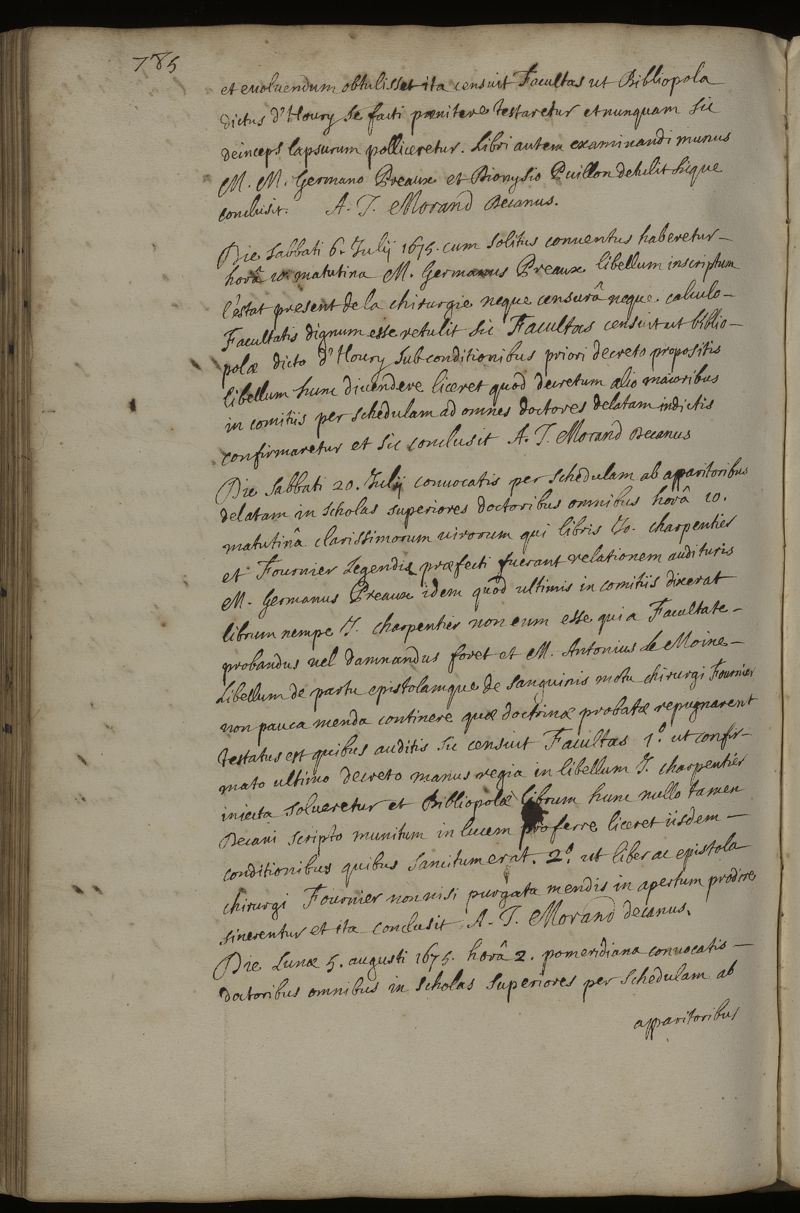 785
et evoluendum obtulisset ita censuit Facultas ut Bibliopola
dictus d'Houry se facti pœnitere testaretur et nunquam sic
deinceps lapsurum polliceretur. Libri autem examinandi munus
M. M. Germano Preaux et Dionysio Puillon detulit sicque
conclusit. A. J. Morand Decanus.
Die Sabbati 6. Julij 1675. cum solitus conventus haberetur –
horâ 10. matutina M. Germanus Preaux libellum inscriptum
l'éstat present de la chirurgie neque censurâ neque calculo –
Facultatis dignum esse retulit sic Facultas censuit ut biblio –
polæ dicto d'Houry sub conditionibus priori decreto propositis
libellum hunc divendere liceret quod decretum alio maioribus
in comitiis per schedulam ad omnes doctores delatam indictis
confirmaretur et sic conclusit A. J. Morand Decanus
Die Sabbati 20. Julij convocatis per schedulam ab apparitoribus
delatam in scholas superiores doctoribus omnibus horâ 10.
matutinâ clarissimorum virorum qui libris Jo. charpentier
et Fournier Legendis præfecti fuerant relationem audituris
M. Germanus Preaux idem quod ultimis in comitiis dixerat
librum nempe J. charpentier non eum esse qui a Facultate –
probandus vel damnandus foret et M. Antonius Le Moine –
Libellum de partu epistolamque de sanguinis motu chirurgi Fournier
non pauca menda continere quæ doctrinæ probatæ repugnarent
testatus est quibus auditis sic censuit Facultas 1º. ut confir-
mato ultimo decreto manus regia in libellum J. charpentier
iniecta solveretur et Bibliopolæ librum hunc nullo tamen
Decani scripto munitum in lucem proferre liceret iisdem –
conditionibus quibus sancitum erat. 2º. ut liber ac epistola
chirurgi Fournier non nisi purgata mendis in apertum prodire
sinerentur et ita conclusit A. J. Morand decanus.
Die Lunæ 5. augusti 1675. horâ 2. pomeridiana convocatis –
doctoribus omnibus in scholas superiores per schedulam ab
apparitoribus